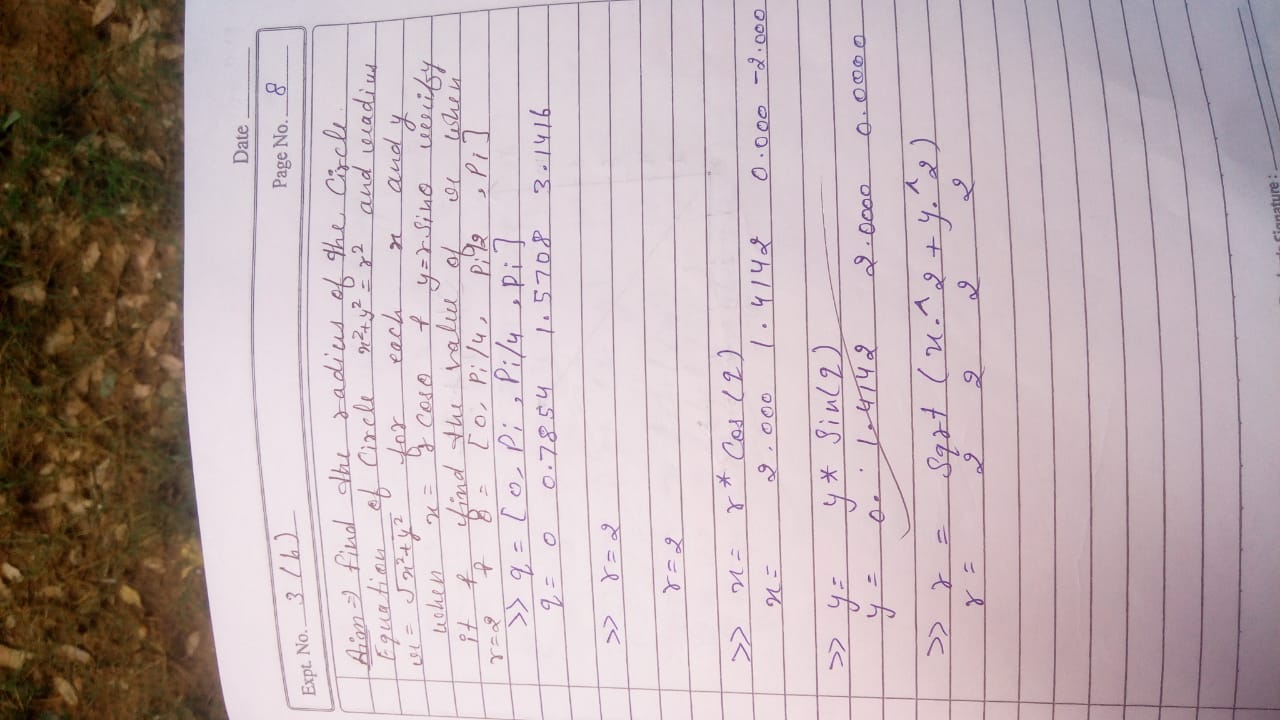 Date
Expt. No. 3(b)
Page No. 8
Aim => find the radius of the Circle
Equation of Circle x²+y² = r² and radius
r = √x²+y² for each x and y
when x = r cosθ & y = r sinθ verify
it & find the value of r when
r=2 & θ = [0, Pi/4, Pi/2, Pi]
>> q = [0, Pi, Pi/4, Pi]
q = 0 0.7854 1.5708 3.1416
>> r=2
r=2
>> x = r* Cos(q)
x = 2.000 1.4142 0.000 -2.000
>> y = y* Sin(q)
y = 0. 1.4142 2.0000 0.0000
>> r = Sqrt (x.^2 + y.^2)
r = 2 2 2 2
Signature: